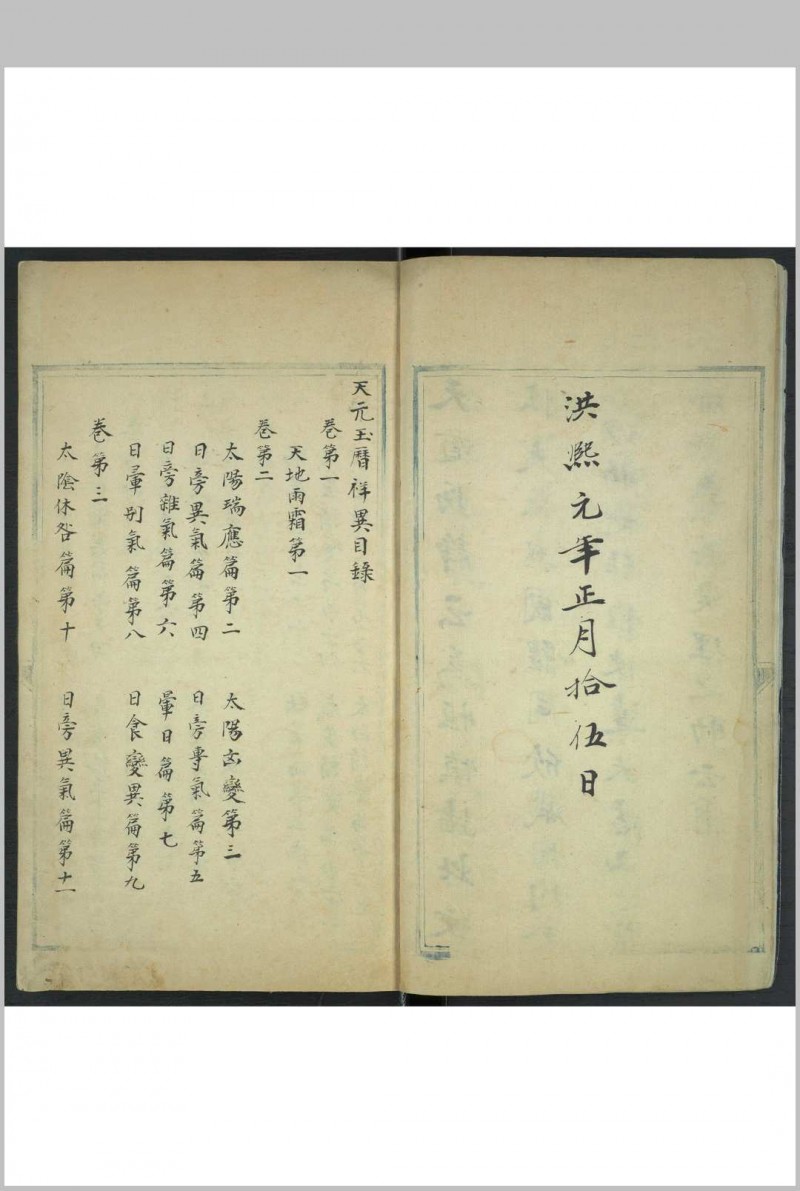 洪熙元年正月拾伍日
天元玉曆祥異目錄
卷第一
天地雨霜第一
卷第二
太陽瑞應篇第二 太陽凶變第三
日旁異氣篇第四 日旁專氣篇第五
日旁雜氣篇第六 暈日篇第七
日暈別氣篇第八 日食變異篇第九
卷第三
太陰休咎篇第十 日旁異氣篇第十一